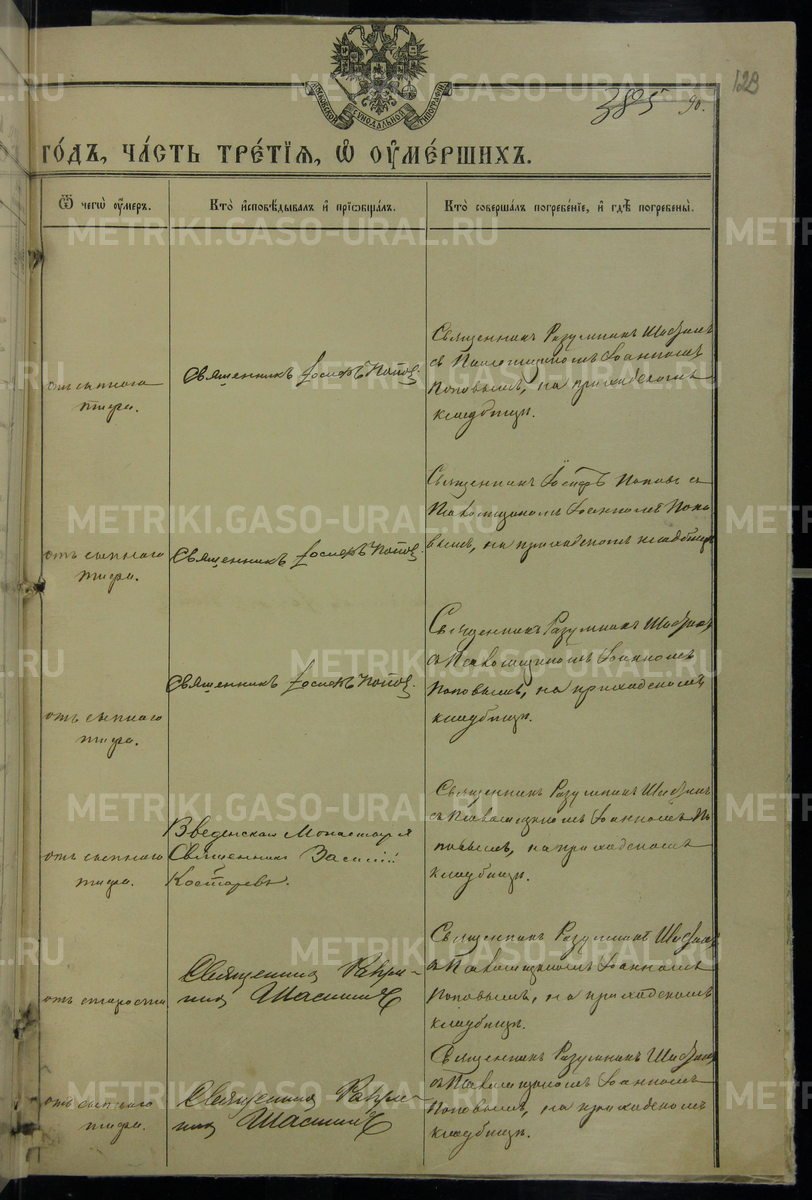 385 90.
123
МОСКОВСКОЙ СУНОДАЛЬНОЙ ТИПОГРАФІИ
го́дъ, ча́сть тре́тїѧ, ѡ҆ ᲂу҆ме́ршихъ.
Ѿ чегѡ̀ ᲂу҆́меръ.
Кто̀ и҆сповѣ́дывалъ и҆ прїѡбща́лъ.
Кто̀ соверша́лъ погребе́нїе, и҆ гдѣ̀ погребены̀.
отъ сыпного
тифа.
Священникъ Іосифъ Поповъ.
Священникъ Разумникъ
съ Псаломщикомъ Іоанномъ
Поповымъ, на приходскомъ
кладбищѣ.
отъ сыпного
тифа.
Священникъ Іосифъ Поповъ
Священникъ Іосифъ Поповъ съ
Псаломщикомъ Іоанномъ Попо-
вымъ, на приходскомъ кладбищѣ
отъ сыпного
тифа.
Священникъ Іосифъ Поповъ.
Священникъ Разумникъ
съ Псаломщикомъ Іоанномъ
Поповымъ, на приходскомъ
кладбищѣ.
отъ сыпного
тифа.
Введенскаго Монастыря
Священникъ Василій
Костаревъ.
Священникъ Разумникъ
съ Псаломщикомъ Іоанномъ По
повымъ, на приходскомъ
кладбищѣ.
отъ старости
Священникъ Разум-
никъ
Священникъ Разумникъ
съ Псаломщикомъ Іоанномъ
Поповымъ, на приходскомъ
кладбищѣ.
отъ сыпного
тифа.
Священникъ Разум-
никъ
Священникъ Разумникъ
съ Псаломщикомъ Іоанномъ
Поповымъ, на приходскомъ
кладбищѣ.
METRIKI.GASO-URAL.RU